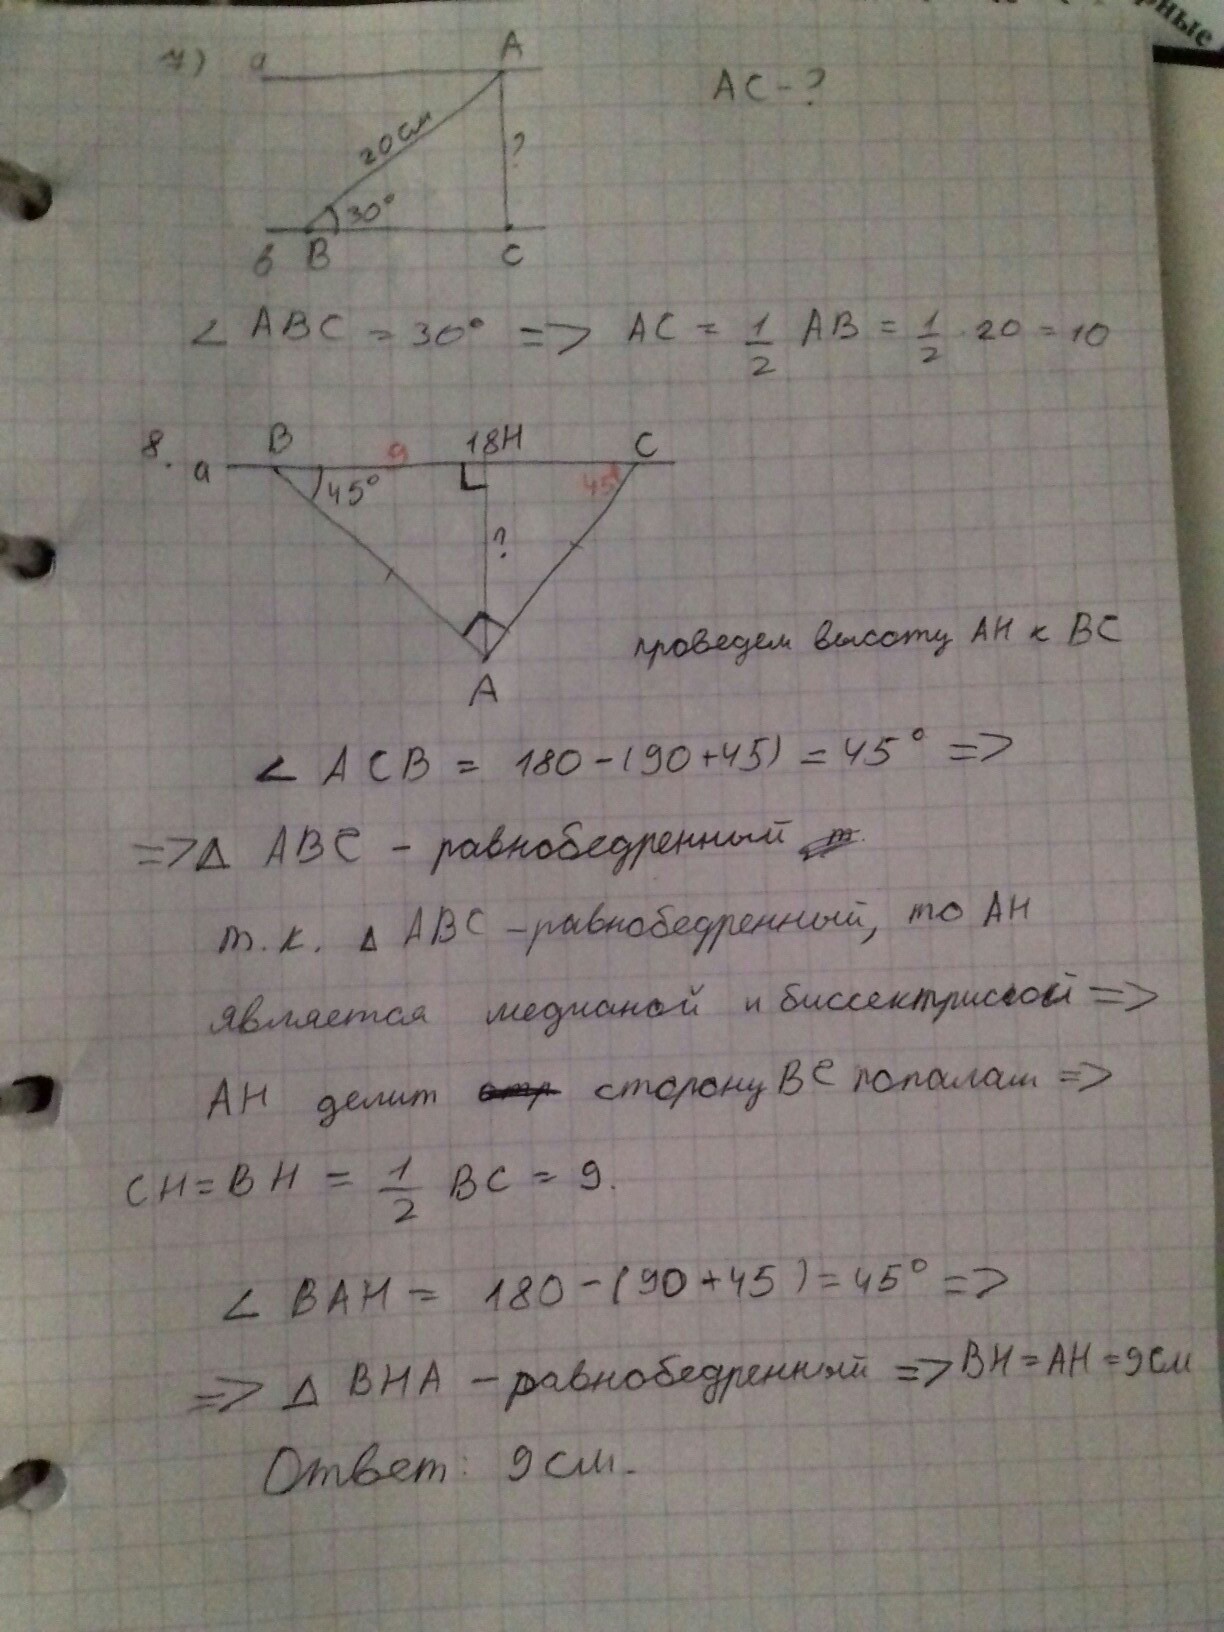 рные
7) a A
AC - ?
20 см
?
30°
б B C
∠ ABC = 30° => AC = 1/2 AB = 1/2 · 20 = 10
8. a B 9 18 H C
45° 45°
?
A
проведем высоту AH к BC
∠ ACB = 180 - (90 + 45) = 45° =>
=> Δ ABC - равнобедренный
т.к. Δ ABC - равнобедренный, то AH
является медианой и биссектрисой =>
AH делит сторону BC пополам =>
CH = BH = 1/2 BC = 9.
∠ BAH = 180 - (90 + 45) = 45° =>
=> Δ BHA - равнобедренный => BH = AH = 9 см
Ответ: 9 см.